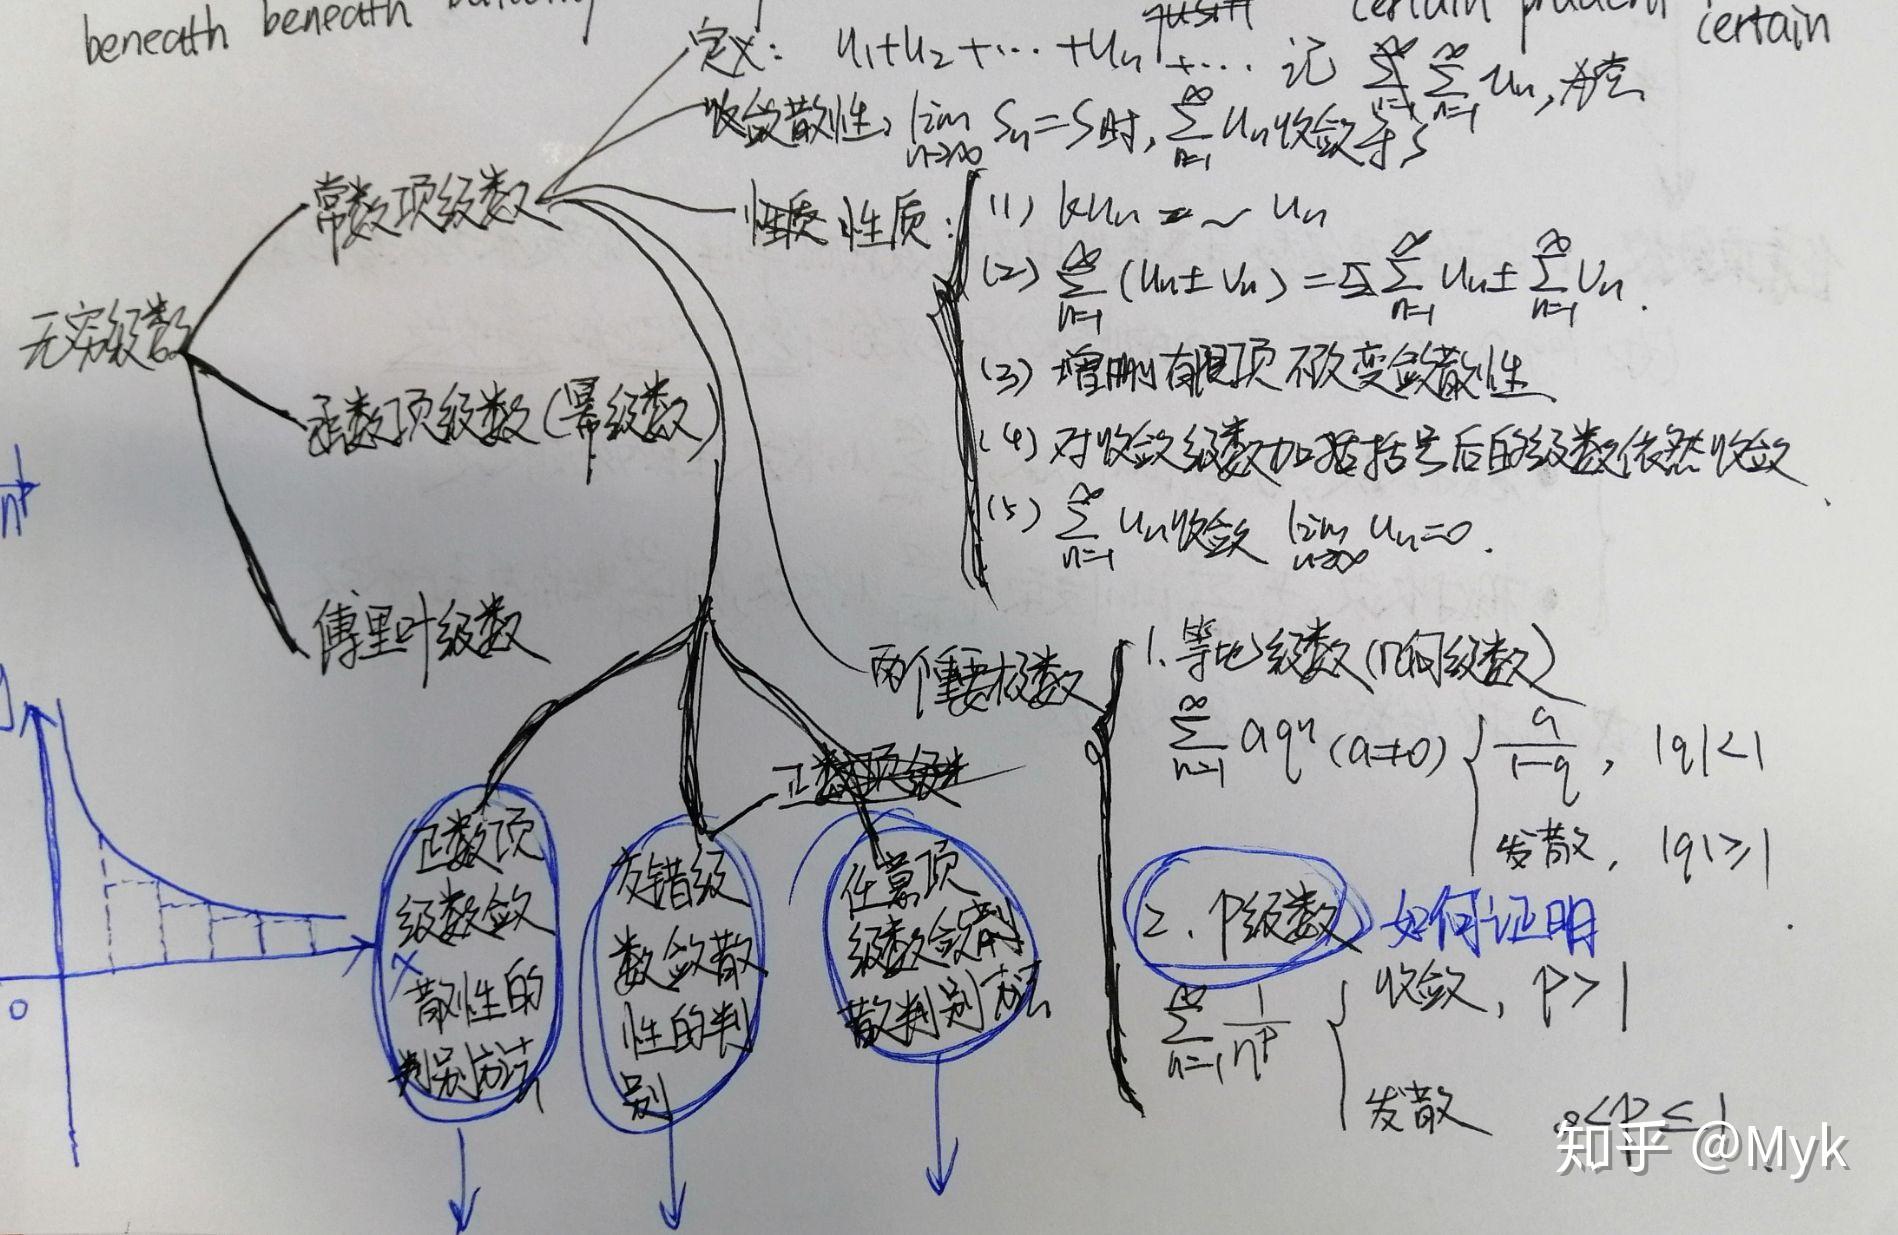 beneath beneath
certain
certain
定义: u₁+u₂+⋯+uₙ+⋯ 记 ∑(n=1→∞) uₙ,
收敛散性, lim(n→∞) Sₙ=S时, ∑(n=1→∞) uₙ收敛于S
常数项级数
性质:
(1) kuₙ = ~ uₙ
(2) ∑(n=1→∞) (uₙ±vₙ) = ∑(n=1→∞) uₙ ± ∑(n=1→∞) vₙ.
(3) 增删有限项不改变敛散性
(4) 对收敛级数加括号后的级数依然收敛
(5) ∑(n=1→∞) uₙ收敛 lim(n→∞) uₙ=0.
无穷级数
函数项级数(幂级数)
傅里叶级数
两个重要级数
1. 等比级数(几何级数)
∑(n=1→∞) aqⁿ (a≠0)
a/(1-q), |q|<1
发散, |q|≥1
2. P级数 如何证明
∑(n=1→∞) 1/nᵖ
收敛, P>1
发散 0<P≤1
正数项级数
正数项
级数敛
散性的
判别方法
交错级
数敛散
性的判
别
任意项
级数敛散
散判别方法
0
x
知乎 @Myk